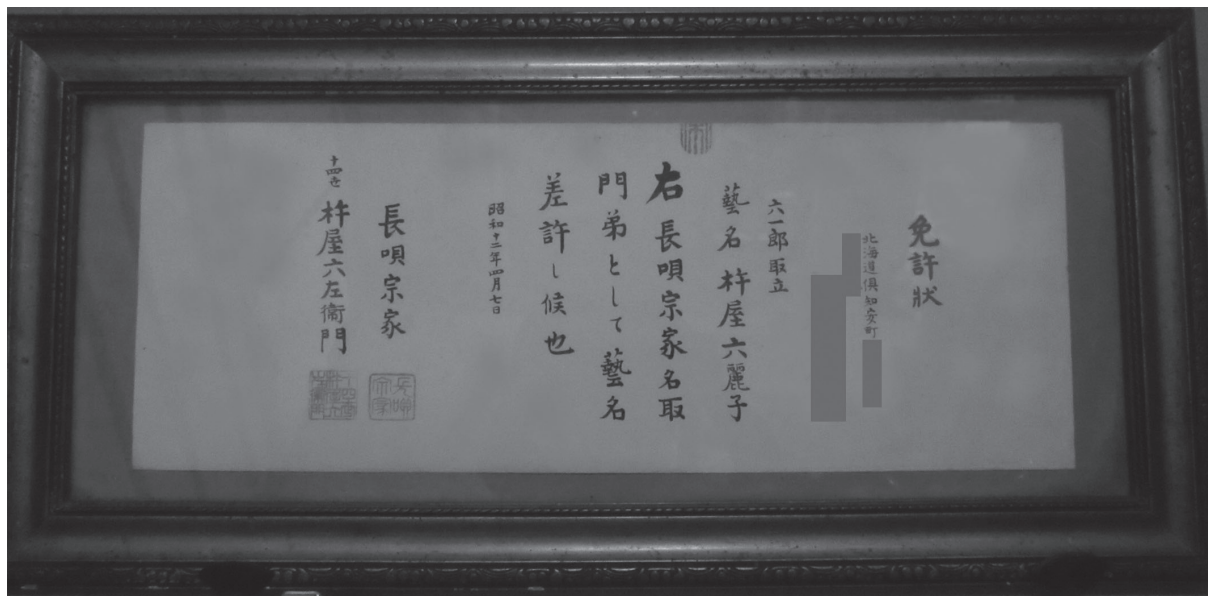 免許状
北海道倶知安町
六一郎取立
藝名 杵屋六麗子
右長唄宗家名取
門弟として藝名
差許し候也
昭和十二年四月七日
長唄宗家
十四世 杵屋六左衛門
長唄宗家